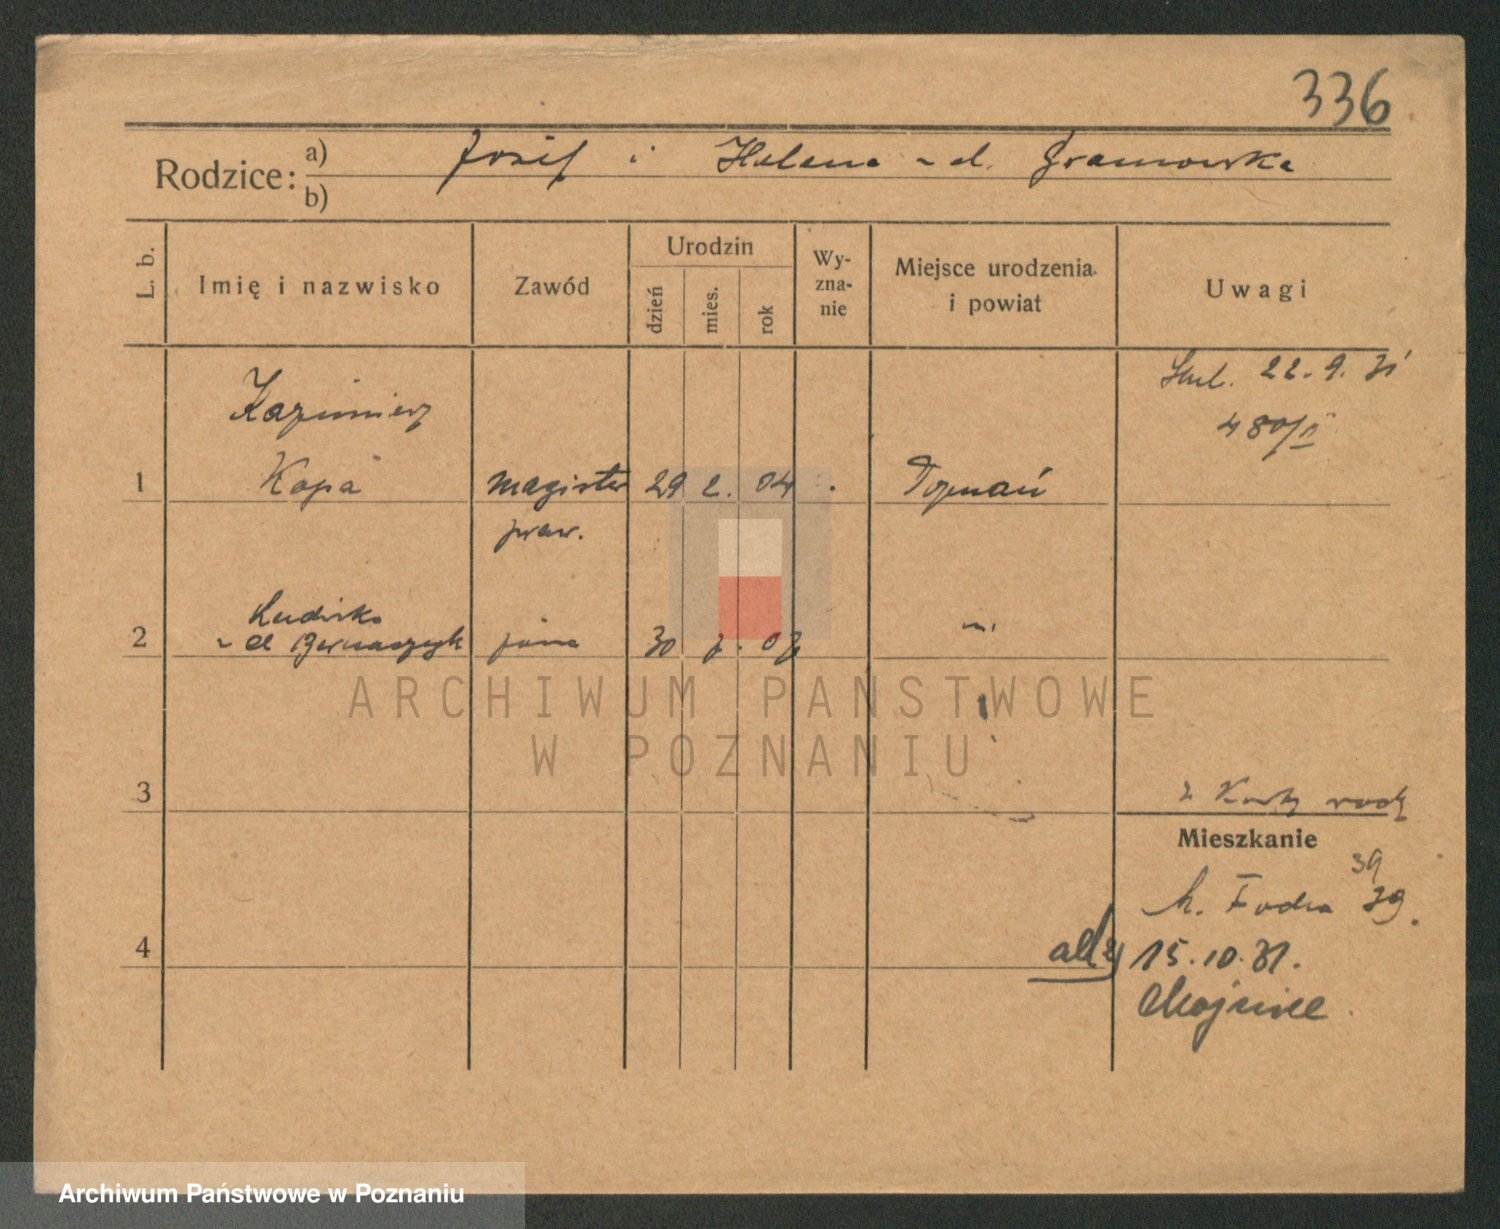 336
Rodzice: a) Józef i Helena z d. Gramowska
b)
L. b.
Imię i nazwisko
Zawód
Urodzin
dzień
mies.
rok
Wy-
zna-
nie
Miejsce urodzenia
i powiat
Uwagi
22. 9. 31
Kazimierz
1 Kopa magister 29 2. 04 Poznań
praw.
Ludwika
2 z d Bernaszyk żona 30 7. 07 "
3
z Karty rodz
Mieszkanie
39
M. Focha 39.
4
15.10.31.
ARCHIWUM PAŃSTWOWE
W POZNANIU
Archiwum Państwowe w Poznaniu